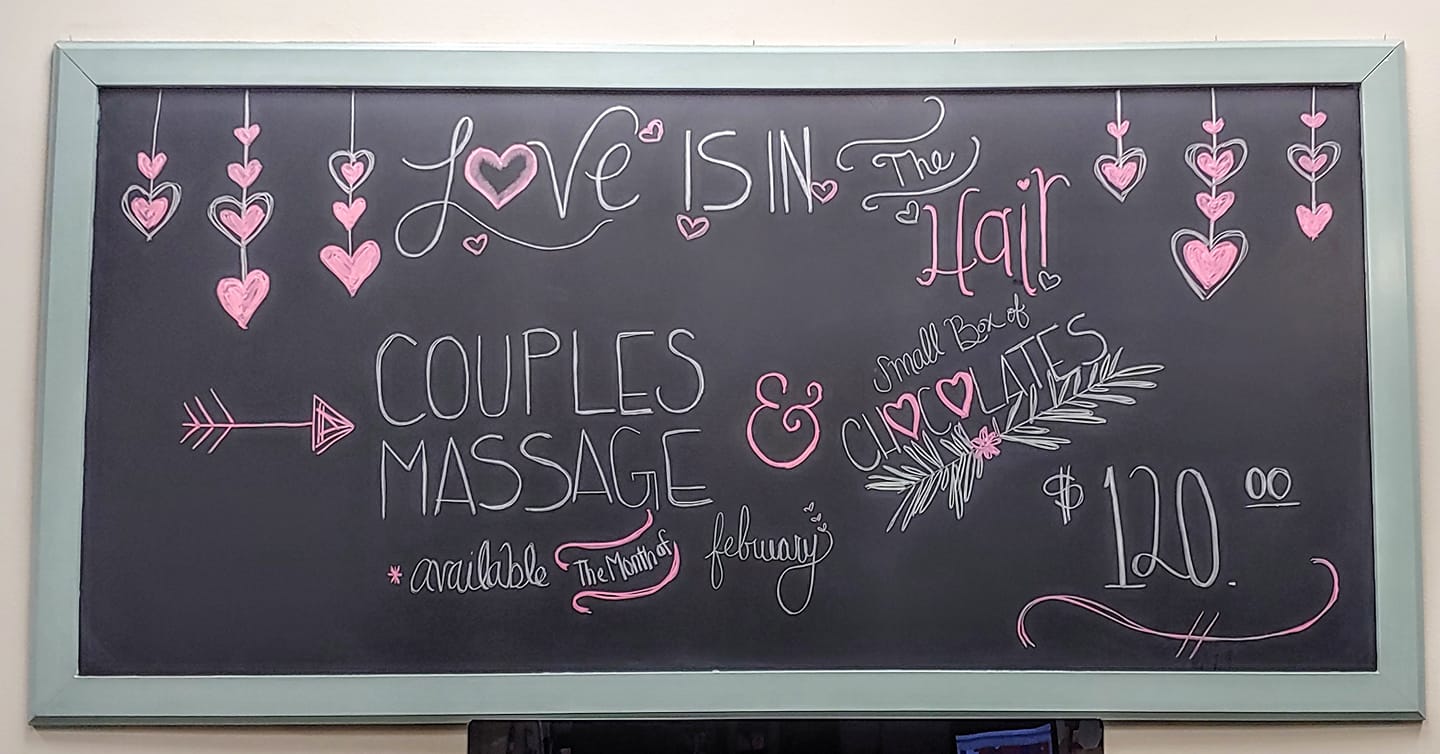 LOVE IS IN The
Hair
COUPLES
MASSAGE
&
Small Box of
CHOCOLATES
$120.00
*available The Month of february